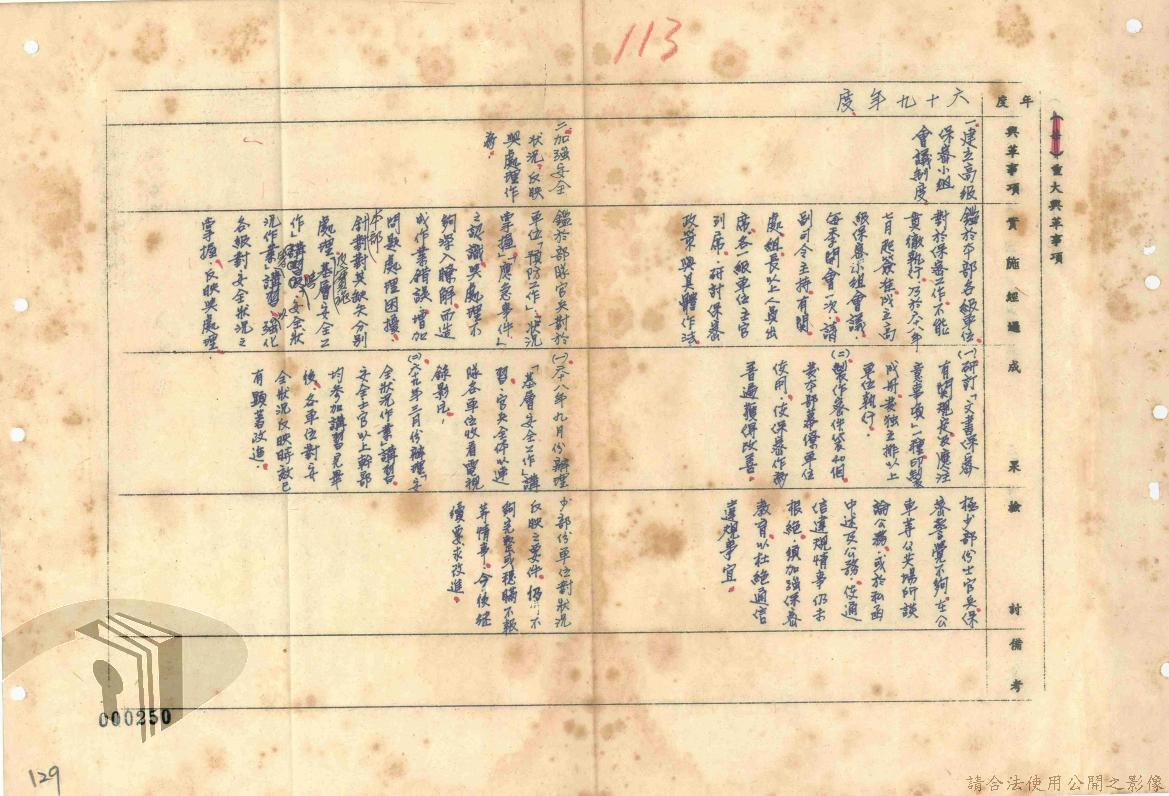 113
重大興革事項
年度
興革事項
實施經過
成果
檢討
備考
六十九年度
一建立高級
保養小組
會議制度
鑑於本部各級單位
對於保養工作不能
貫徹執行,乃於六八年
七月起簽准成立高
級保養小組會議,
每季開會一次,請
副司令主持有關
處組長以上人員出
席,各一級單位主官
列席,研討保養
政策與具體作法
(一)研訂「文書保養
有關規定及應注
意事項」一種印製
成冊,發獨立排以上
單位執行。
(二)製作
使用,使保養作為
普遍獲得改善。
極少部份士官兵保
養警覺不夠,在公
車等公共場所談
論公務,或於私函
中述及公務,使通
信違規情事仍未
根絕,須加強保養
教育,以杜絕通信
違規事宜。
二加強安全
狀況反映
與處理作
為。
鑑於部隊官兵對於
單位「預防工作」、狀況
掌握」「應急事件」
之認識與處理不
夠深入瞭解,而造
成作業錯誤,增加
問題處理困擾,
本部
針對其缺失分別
處理「基層安全工
作」講習及「安全狀
況作業」講習,強化
各級對安全狀況之
掌握、反映與處理。
(一)六十八年九月份辦理
「基層安全工作」講
習,官兵全係以連
隊各單位收看電視
錄影見,
(二)六十九年三月份辦理「安
全狀況作業」講習,
安全士官以上幹部
均參加講習完畢
後,各單位對安
全狀況反映時效已
有顯著改進。
少部份單位對狀況
反映之要件,仍有不
夠完整或隱瞞不報
等情事,今後經
續要求改進。
000250
129
請合法使用公開之影像